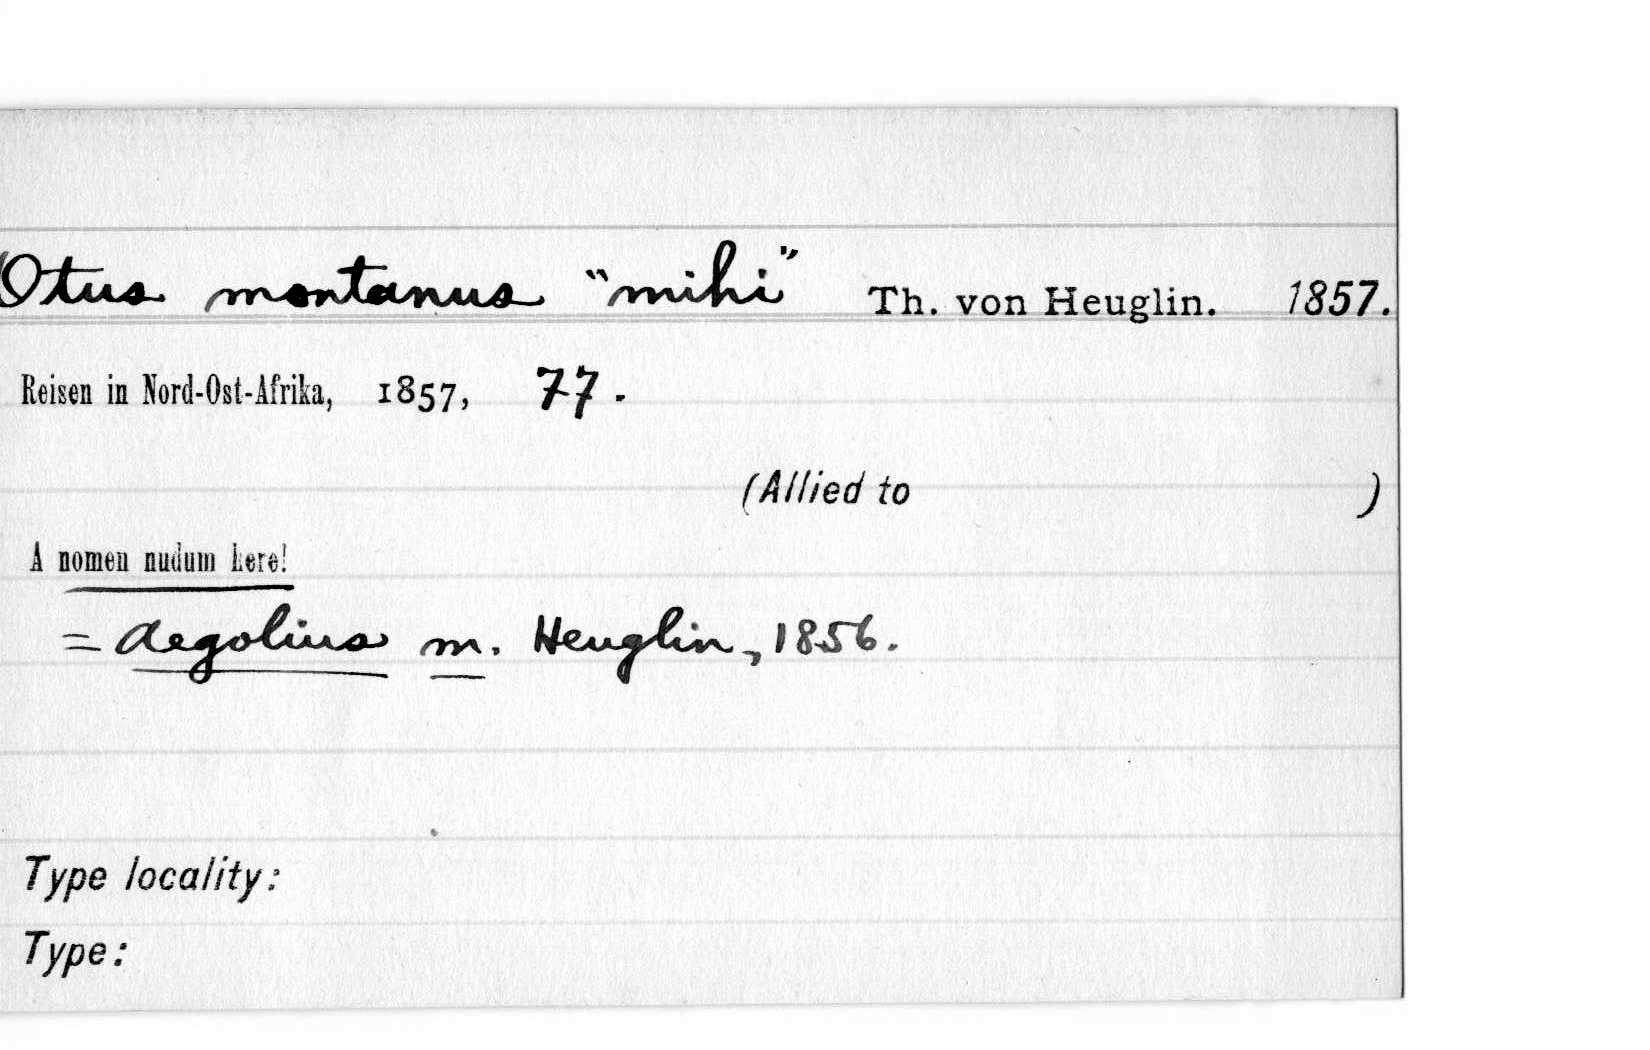 Otus montanus "mihi" Th. von Heuglin. 1857.
Reisen in Nord-Ost-Afrika, 1857, 77.
(Allied to )
A nomen nudum here!
= Aegolius m. Heuglin, 1856.
Type locality:
Type: